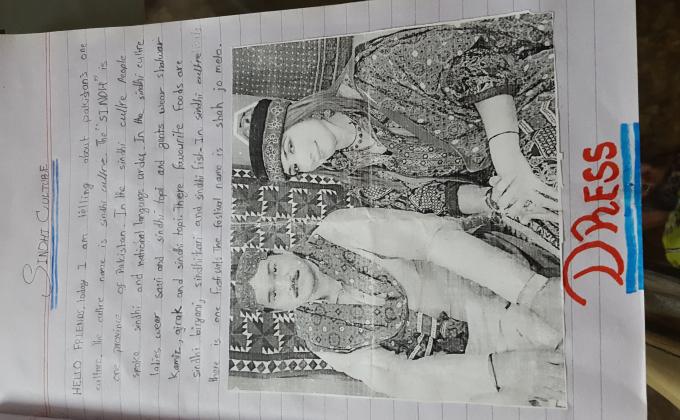 SINDHI CULTURE
HELLO FRIENDS, today I am telling about pakistan's one
cultre. The cultre name is sindhi cultre. The "SINDH" is
one province of Pakistan. In the sindhi cultre People
smoke sindhi and national language urdu. In the sindhi cultre
ladies wear sari and sindhi topi and gents wear shalwar
Kamiz, ajrak and sindhi topi. There favourite foods are
sindhi biryani, sindhi kari and sindhi fish. In sindhi cultre
there is one festival. The fastival name is shah jo melo.
DRESS